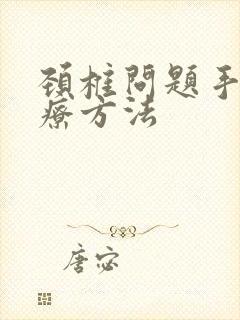 頚椎問題手
療方法
唐宓